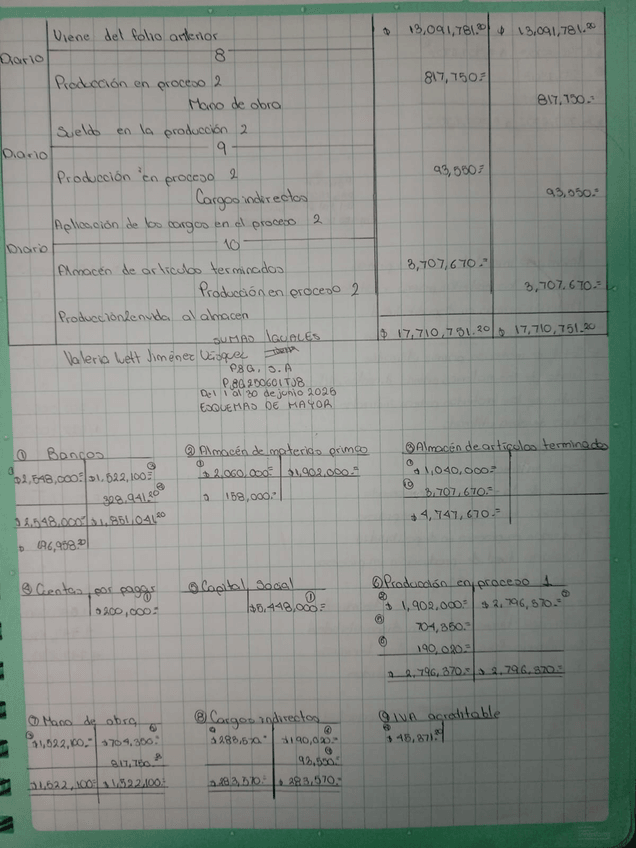 Viene del folio anterior $ 13,091,781.20 $ 13,091,781.20
Diario 8
Producción en proceso 2 817,750.=
Mano de obra 817,750.=
Sueldo en la producción 2
Diario 9
Producción en proceso 2 93,550=
Cargos indirectos 93,550.=
Aplicación de los cargos en el proceso 2
Diario 10
Almacén de articulos terminados 3,707,670.=
Producción en proceso 2 3,707,670.=
Producción2envida al almacen
SUMAS IGUALES $ 17,710,751.20 $ 17,710,751.20
Valeria Lett Jiménez Vázquez
P&G. S.A
P&G250601TJB
Del 1 al 30 de junio 2025
ESQUEMAS DE MAYOR
① Bancos ② Almacén de materias primas ③ Almacén de articulos terminados
$2,548,000= $1,522,100= $2,060,000= $1,902,000= $1,040,000=
328,941.20 $ 158,000= 3,707,670.=
$2,548,000= $1,851,041.20 $4,747,670.=
696,958.80
④ Cuentas por pagar ⑤ Capital Social ⑥ Producción en proceso 1
$200,000= $5,448,000= $ 1,902,000= $2,796,370=
704,350=
190,020=
$ 2,796,370= $ 2,796,370=
⑦ Mano de obra ⑧ Cargos indirectos ⑨ IVA acreditable
$1,522,100.= $704,350= $283,570= $190,020= $45,371.20
817,750 93,550=
$1,522,100= $1,522,100= $283,570= $283,570=